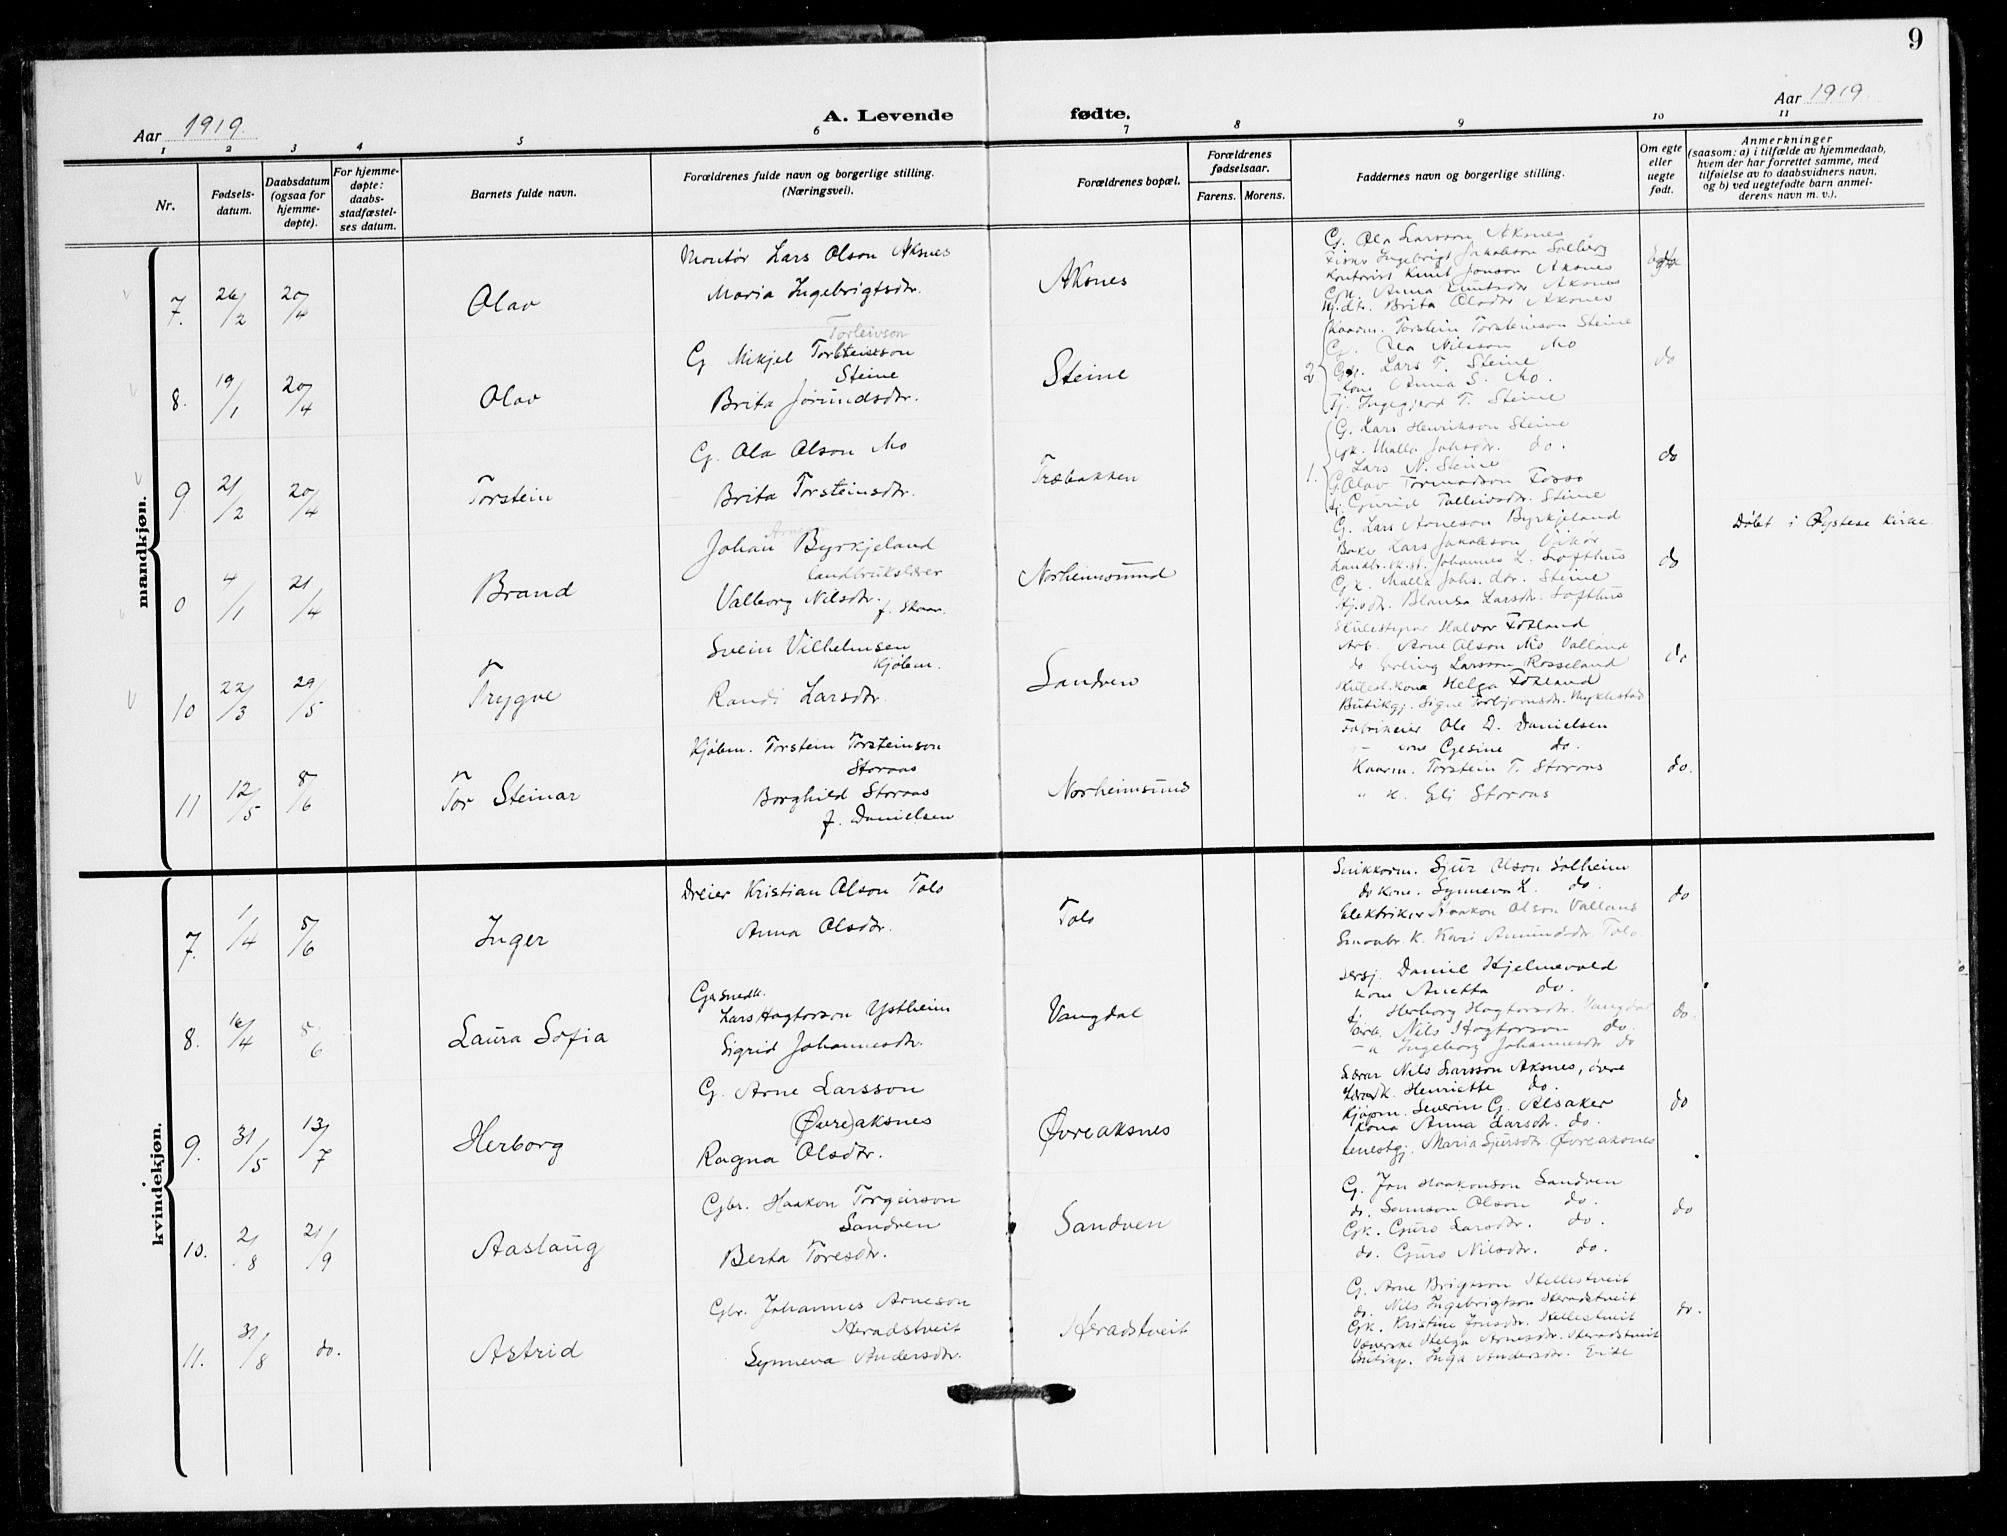 9
Aar 1919.
A. Levende fødte.
Aar 1919.
1 2 3 4 5 6 7 8 9 10 11
Nr.
Fødsels-
datum.
Daabsdatum
(ogsaa for
hjemme-
døpte).
For hjemme-
døpte:
daabs-
stadfæstel-
ses datum.
Barnets fulde navn.
Forældrenes fulde navn og borgerlige stilling.
(Næringsvei).
Forældrenes bopæl.
Forældrenes
fødselsaar.
Farens. Morens.
Faddernes navn og borgerlige stilling.
Om egte
eller
uegte
født.
Anmerkninger
(saasom: a) i tilfælde av hjemmedaab,
hvem der har forrettet samme, med
tilføielse av to daabsvidners navn,
og b) ved uegtefødte barn anmel-
derens navn m. v.).
mandkjøn.
7. 26/2 20/4
Olav
Montør Lars Olson Aksnes
Maria Ingebrigtsdtr.
Aksnes
G. Ola Larsson Aksnes
Ingebrigt Jakobson Solberg
Kontorist Knut Jonson Aksnes
Gk. Anna Knutsdtr Aksnes
Brita Olsdtr Aksnes
8. 19/1 20/4
Olav
Torleivson
G Mikjel Torsteinson
Steine
Brita Jørundsdtr.
Steine
2
Torstein Torsteinson Steine
G. Ola Nilsson Mo
Lars T. Steine
kone Anna S. Mo.
Ingegjerd T. Steine
do
9. 21/2 20/4
Torstein
G. Ola Olson Mo
Brita Torsteinsdtr.
Træbakken
1.
G. Lars Henrikson Steine
Gk. Malla Johsdtr. do.
Lars N. Steine
Olav Tormodson Fosso
Gjurid Tolleivsdtr. Steine
do
0 4/1 21/4
Brand
Arneson
Johan Byrkjeland
landbrukslærer
Valborg Nilsdtr.
f. Skaar.
Norheimsund
G. Lars Arneson Byrkjeland
Lars Jakobson Vikør
Johannes L. Softhus
Gk. Malla Johs. dtr. Steine
Blansa Larsdtr. Softhus
do
Døbt i Øystese kirke.
10 22/3 29/5
Trygve
Svein Vilhelmsen
Kjøbm.
Randi Larsdtr.
Sandven
Skulestyrar Halvor Fotland
Arb. Arne Olson Mo Valland
do Erling Larsson Rosseland
Skulest. kona Helga Fotland
Butikgj. Signe Torbjørnsdtr. Myklestad
do
11 12/5 8/6
Tor Steinar
Kjøbm. Torstein Torsteinson
Storaas
Borghild Storaas
f. Danielsen
Norheimsund
Fabrikeier Ole D. Danielsen
" kone Gesine do.
Kaarm. Torstein T. Storaas
" k. Eli Storaas
do.
kvindekjøn.
7. 1/4 5/6
Inger
Dreier Kristian Olson Tolo
Anna Olsdtr.
Tolo
Snikkarm. Sjur Olson Solheim
do kone. Synneva L. do.
Elektriker Haakon Olson Valland
Smaabr. k. Kari Amundsdtr. Tolo.
do
8. 16/4 5/6
Laura Sofia
Lars Hagtorson Ystheim
Sigrid Johannesdtr.
Vangdal
Daniel Hjelmevold
kone Anetta do.
Herborg Hagtorsdtr. Vangdal
Arb. Nils Hagtorson do.
Ingeborg Johannesdtr do
do.
9. 31/5 13/7
Herborg
G. Arne Larsson
(Øvre)aksnes
Ragna Olsdtr.
Øvreaksnes
Lærar Nils Larsson Aksnes, øvre
Lærark. Henriette do.
Kjøpm. Severin G. Alsaker
Kona Anna Larsdtr. do.
Tenestgj. Maria Sjursdtr. Øvreaksnes
do
10. 2/8 21/9
Aaslaug
Gbr. Haakon Torgeirson
Sandven
Berta Toresdtr.
Sandven
G. Jon Haakonson Sandven
do. Samson Olson do.
Gk. Guro Larsdtr. do.
do. Guro Nilsdtr. do.
do
11. 31/8 do.
Astrid
Gbr. Johannes Arneson
Heradstveit
Synneva Andersdtr.
Heradstveit
G. Arne Brigtson Hellestveit
do. Nils Ingebrigtson Heradstveit
Gk. Kristine Jonsdtr. Hellestveit
Væverske Helga Arnesdtr. Heradstveit
Inga Andersdtr. Eide
do.